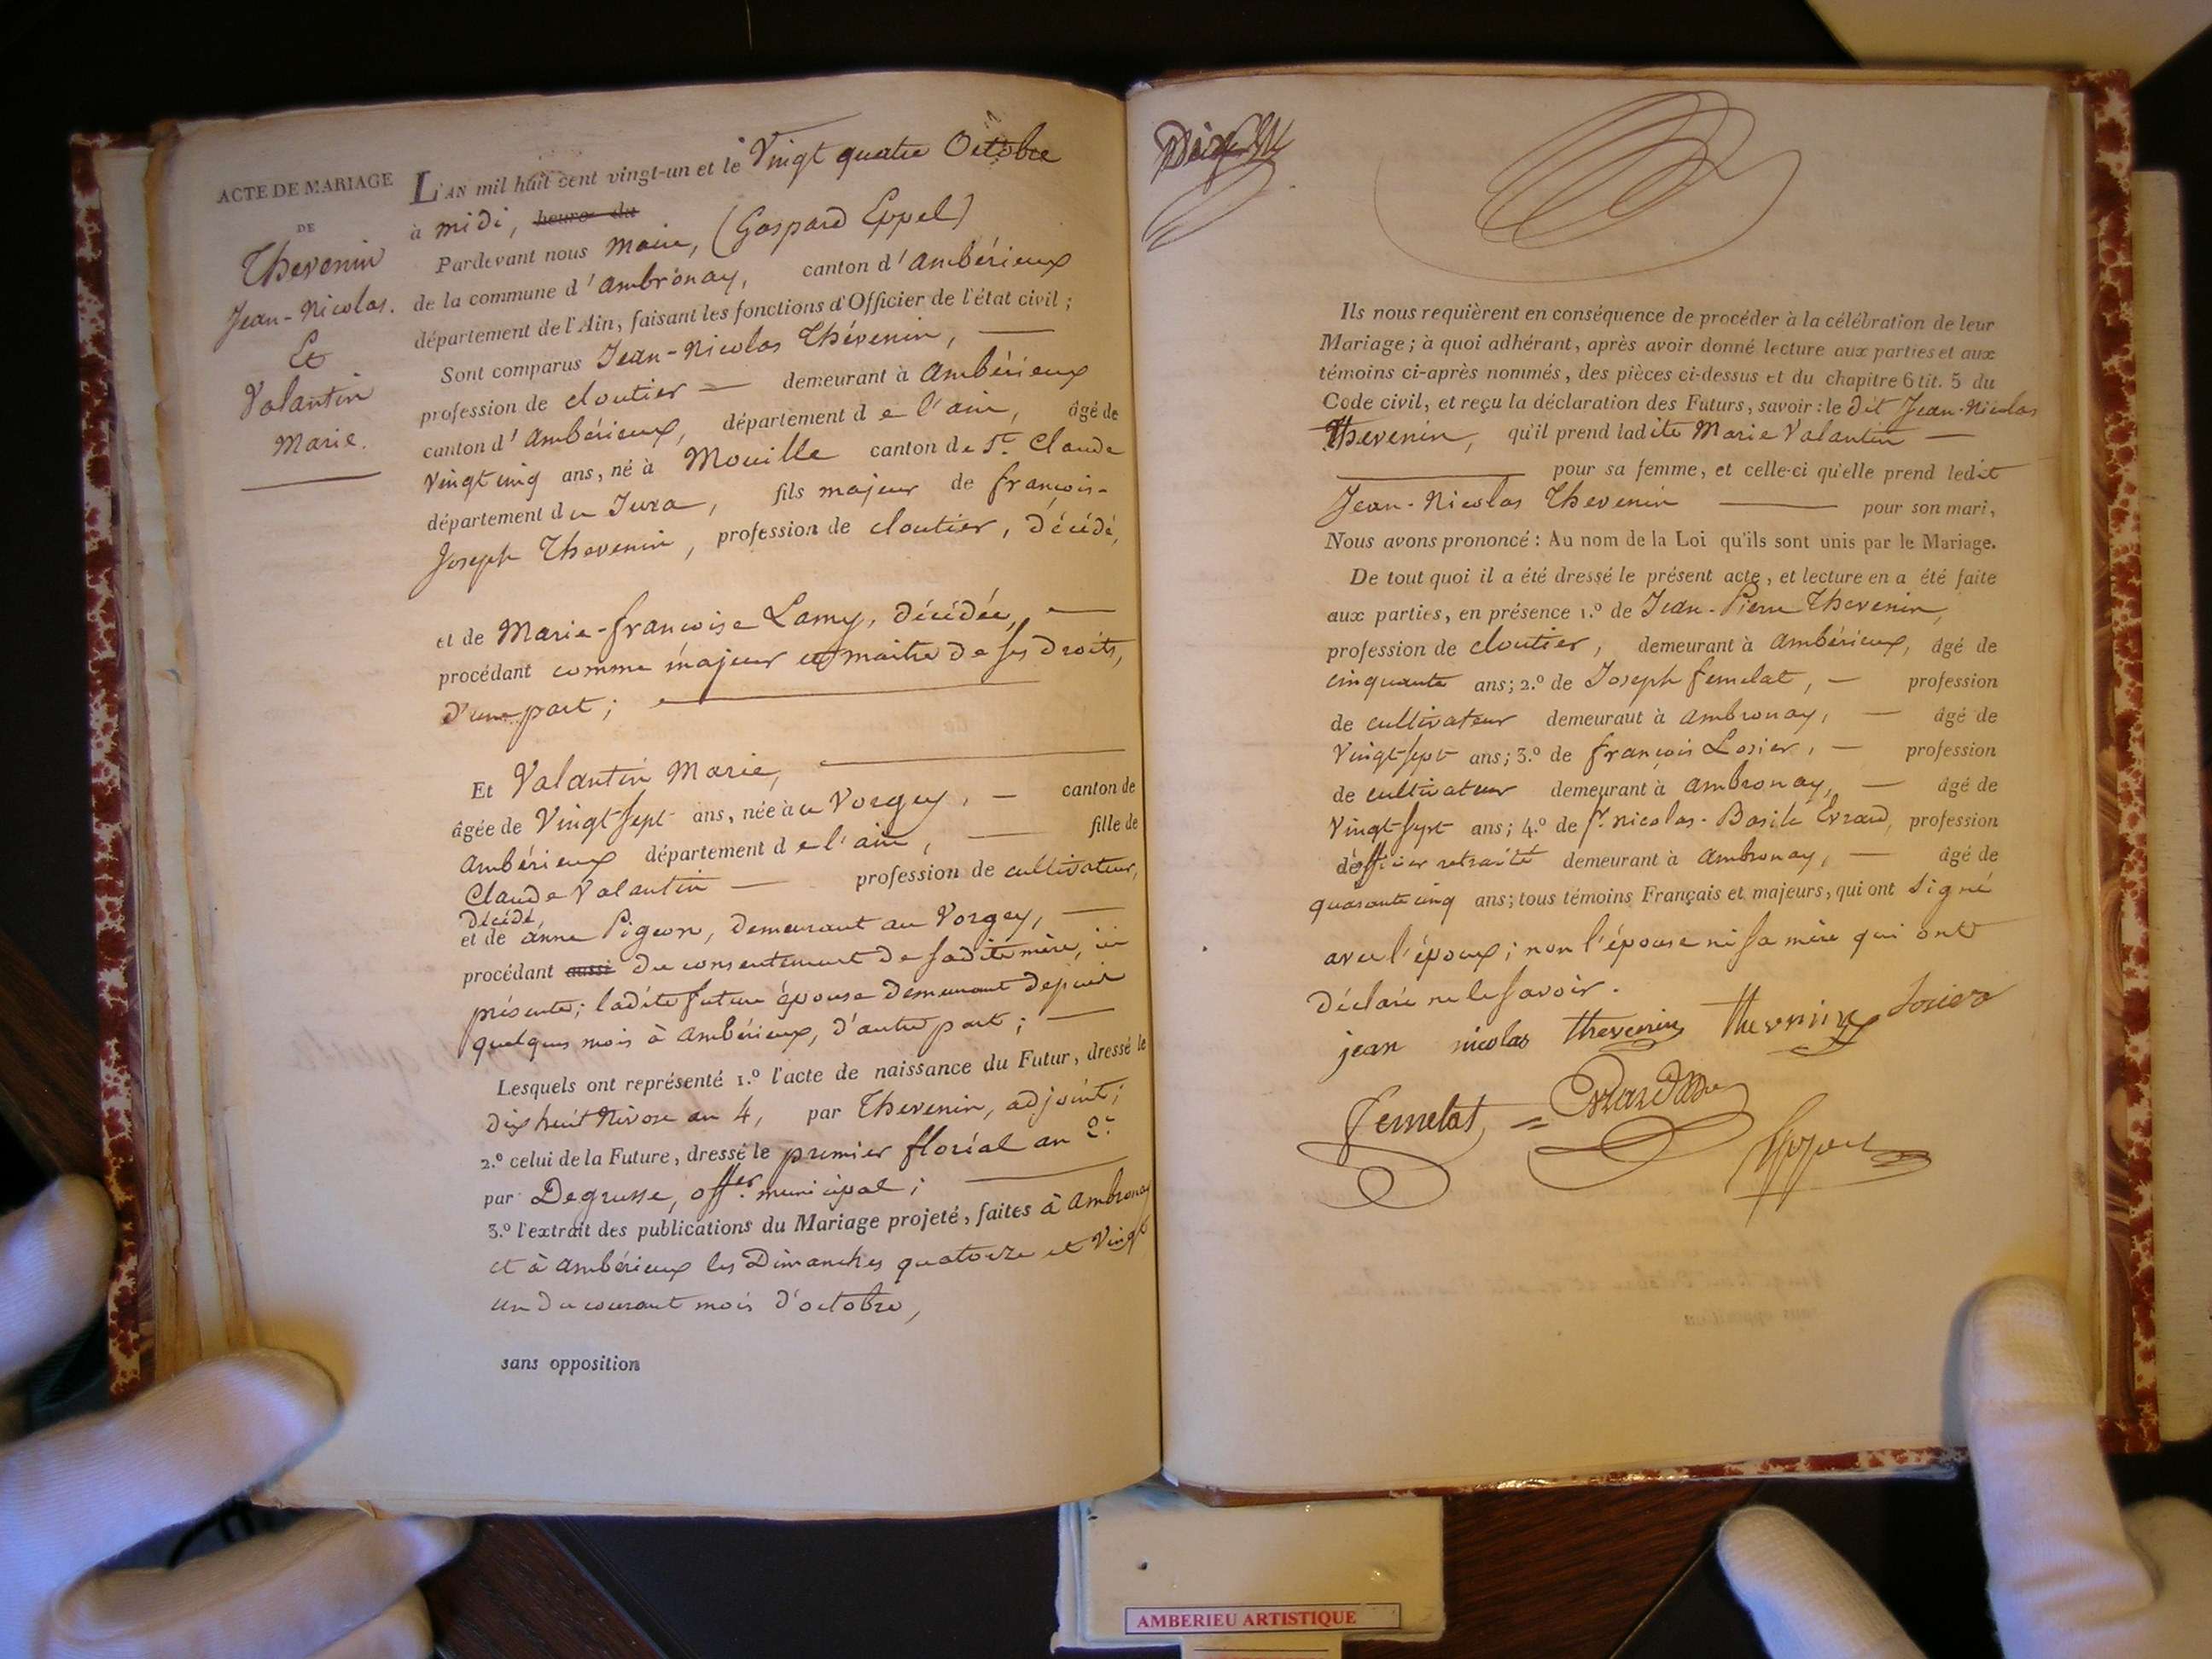 ACTE DE MARIAGE
DE
Thevenin
Jean-Nicolas.
Et
Valantin
Marie.
L'AN mil huit cent vingt-un et le Vingt quatre Octobre
à midi, heure du
Pardevant nous Maire, (Gaspard Eppel)
de la commune d'ambronay, canton d'ambérieux
département de l'Ain, faisant les fonctions d'Officier de l'état civil ;
Sont comparus Jean-Nicolas Thévenin,
profession de cloutier demeurant à ambérieux
canton d'ambérieux, département de l'ain, âgé de
Vingt cinq ans, né à Mouille canton de St. Claude
département du Jura, fils majeur de françois-
Joseph Thevenin, profession de cloutier, décédé,
et de Marie-françoise Lamy, décédée,
procédant comme majeur et maitre de ses droits,
d'une part ;
Et Valantin Marie,
âgée de Vingt sept ans, née au Vorgey, canton de
ambérieux département de l'ain, fille de
Claude Valantin profession de cultivateur,
décédé,
et de anne Pigeon, demeurant au Vorgey,
procédant aussi du consentement de sadite mère, ici
présente ; ladite future épouse demeurant depuis
quelques mois à ambérieux, d'autre part ;
Lesquels ont représenté 1.º l'acte de naissance du Futur, dressé le
dix huit Nivose an 4, par Thevenin, adjoint ;
2.º celui de la Future, dressé le premier floréal an 2e.
par Degrusse, offer. municipal ;
3.º l'extrait des publications du Mariage projeté, faites à ambronay
et à ambérieux les Dimanches quatorze et Vingt
un du courant mois d'octobre,
sans opposition
Ils nous requièrent en conséquence de procéder à la célébration de leur
Mariage ; à quoi adhérant, après avoir donné lecture aux parties et aux
témoins ci-après nommés, des pièces ci-dessus et du chapitre 6 tit. 5 du
Code civil, et reçu la déclaration des Futurs, savoir : le dit Jean-Nicolas
Thevenin, qu'il prend ladite Marie Valantin
pour sa femme, et celle-ci qu'elle prend ledit
Jean-Nicolas Thevenin pour son mari,
Nous avons prononcé : Au nom de la Loi qu'ils sont unis par le Mariage.
De tout quoi il a été dressé le présent acte, et lecture en a été faite
aux parties, en présence 1.º de Jean-Pierre Thevenin,
profession de cloutier, demeurant à ambérieux, âgé de
cinquante ans ; 2.º de Joseph femelat, profession
de cultivateur demeuraut à ambronay, âgé de
Vingt sept ans ; 3.º de françois Losier, profession
de cultivateur demeurant à ambronay, âgé de
Vingt sept ans ; 4.º de Sr. nicolas-Basile Evrard, profession
d'officier retraité demeurant à ambronay, âgé de
quarante cinq ans ; tous témoins Français et majeurs, qui ont signé
avec l'époux ; non l'épouse ni sa mère qui ont
déclaré ne le savoir.
jean nicolas thevenin thevenin Losier
femelat Evrard
Eppel
AMBERIEU ARTISTIQUE